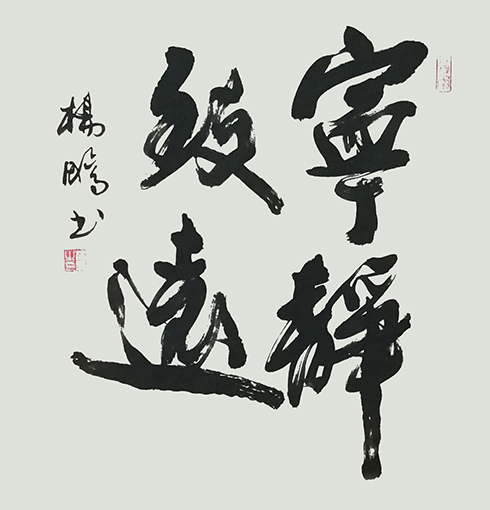 寧靜
致遠
楊鵬书